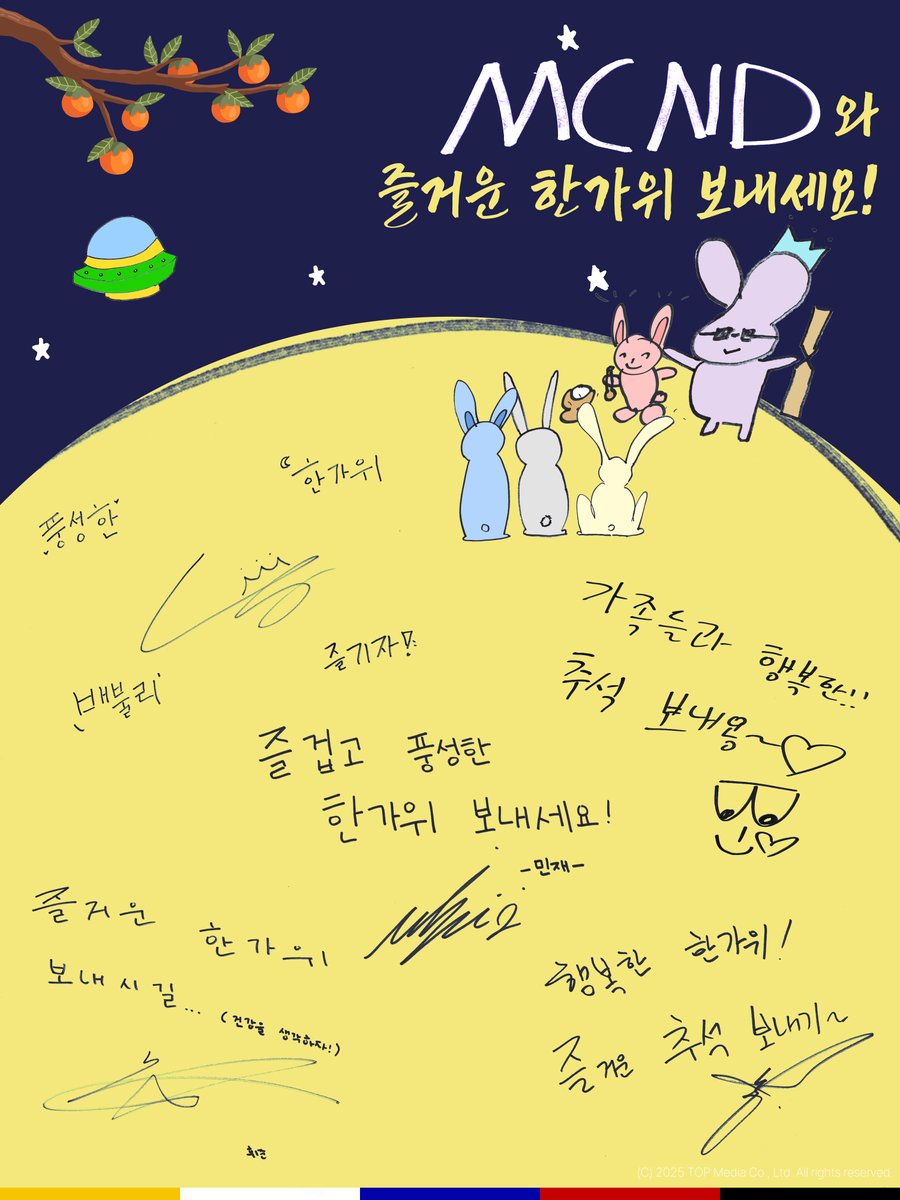 MCND와
즐거운 한가위 보내세요!
풍성한
한가위
즐기자!!
배불리
가족들과 행복한!!
추석 보내용~♡
즐겁고 풍성한
한가위 보내세요!
-민재-
즐거운 한가위
보내시길...
(건강을 생각하자!)
휘준
행복한 한가위!
즐거운 추석 보내기~
(C) 2025.TOP Media Co., Ltd. All rights reserved.